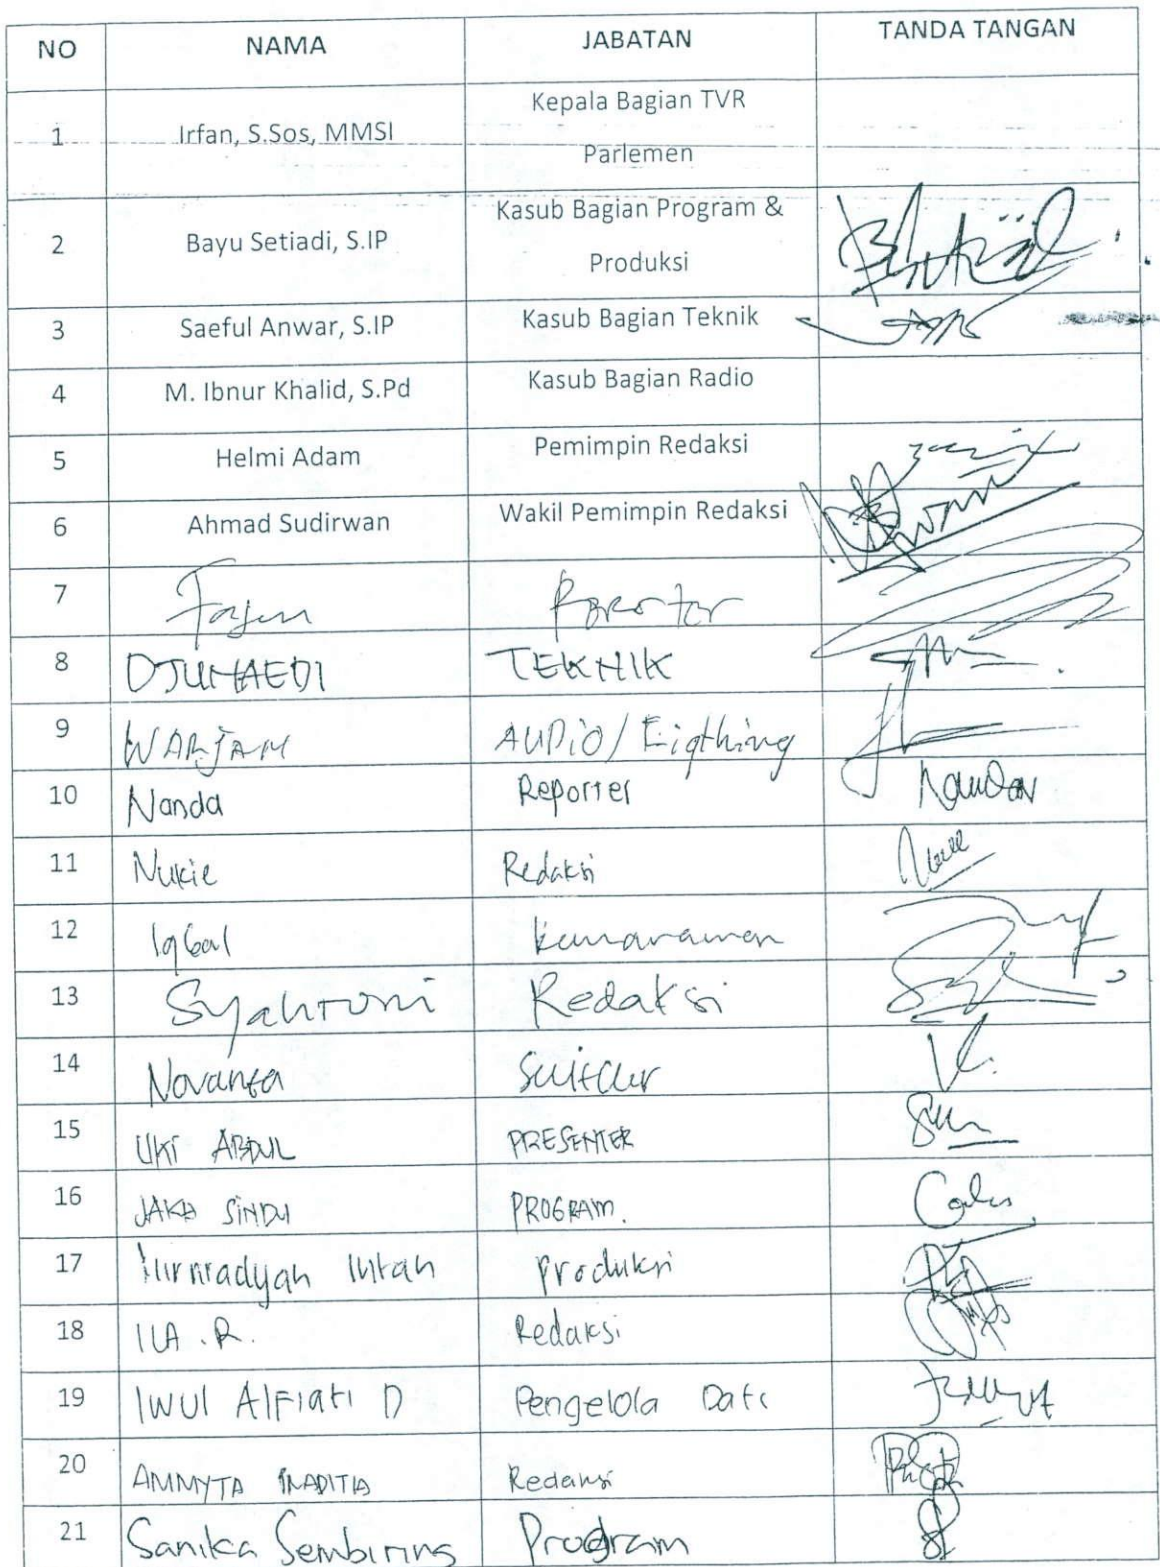 NO NAMA JABATAN TANDA TANGAN
1 Irfan, S.Sos, MMSI Kepala Bagian TVR
Parlemen
2 Bayu Setiadi, S.IP Kasub Bagian Program &
Produksi
3 Saeful Anwar, S.IP Kasub Bagian Teknik
4 M. Ibnur Khalid, S.Pd Kasub Bagian Radio
5 Helmi Adam Pemimpin Redaksi
6 Ahmad Sudirwan Wakil Pemimpin Redaksi
7
8 DJUHAEDI TEKHIK
9 WARJAM AUDiO/
10 Nanda Reporter
11 Nukie Redaksi
12 Iqbal
13 Syahroni Redaksi
14 Novanta
15 UKI ABDUL PRESENTER
16 JAKA SINDU PROGRAM.
17 Intan produksi
18 ILA . R. Redaksi
19 IWUl AlFiati D Pengelola Data
20 AMMYTA PRADITIA Redaksi
21 Sanika Sembiring Program